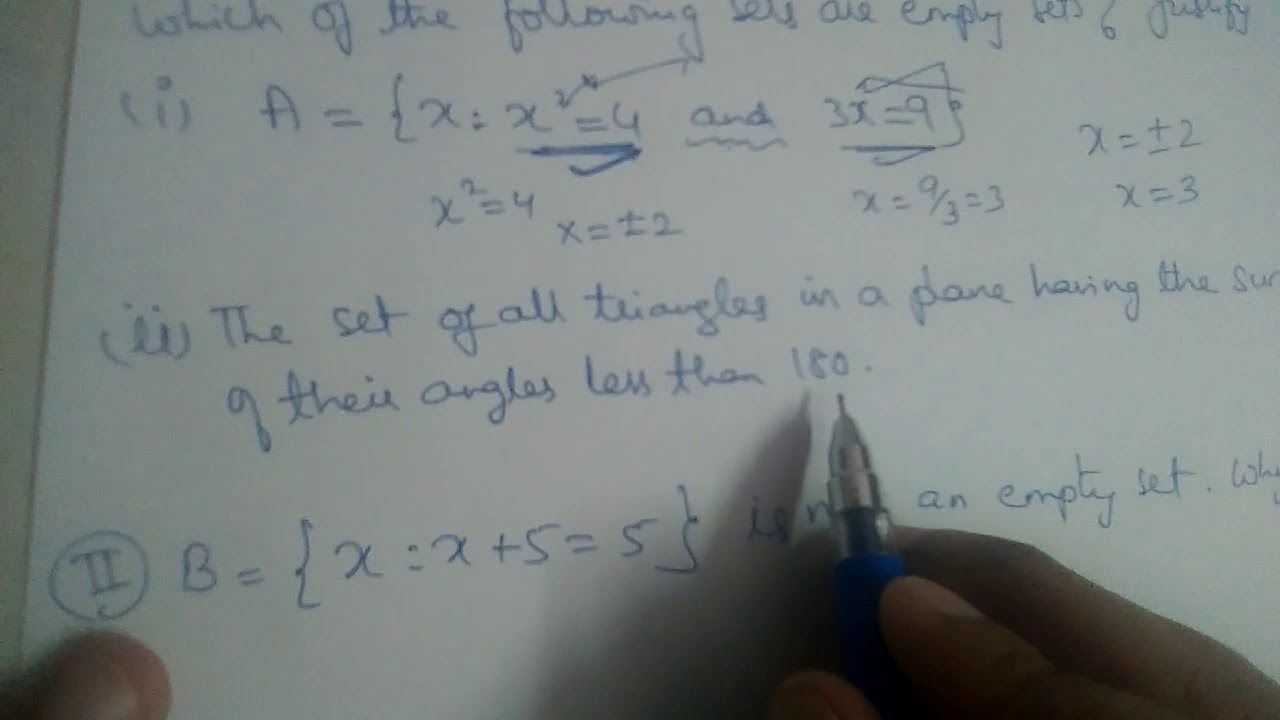 which of the following sets are empty sets justify
(i) A = {x : x² = 4 and 3x = 9}
x² = 4 x = ±2 x = 9/3 = 3
x = ±2
x = 3
(ii) The set of all triangles in a plane having the
of their angles less than 180.
II B = {x : x + 5 = 5} is an empty set.